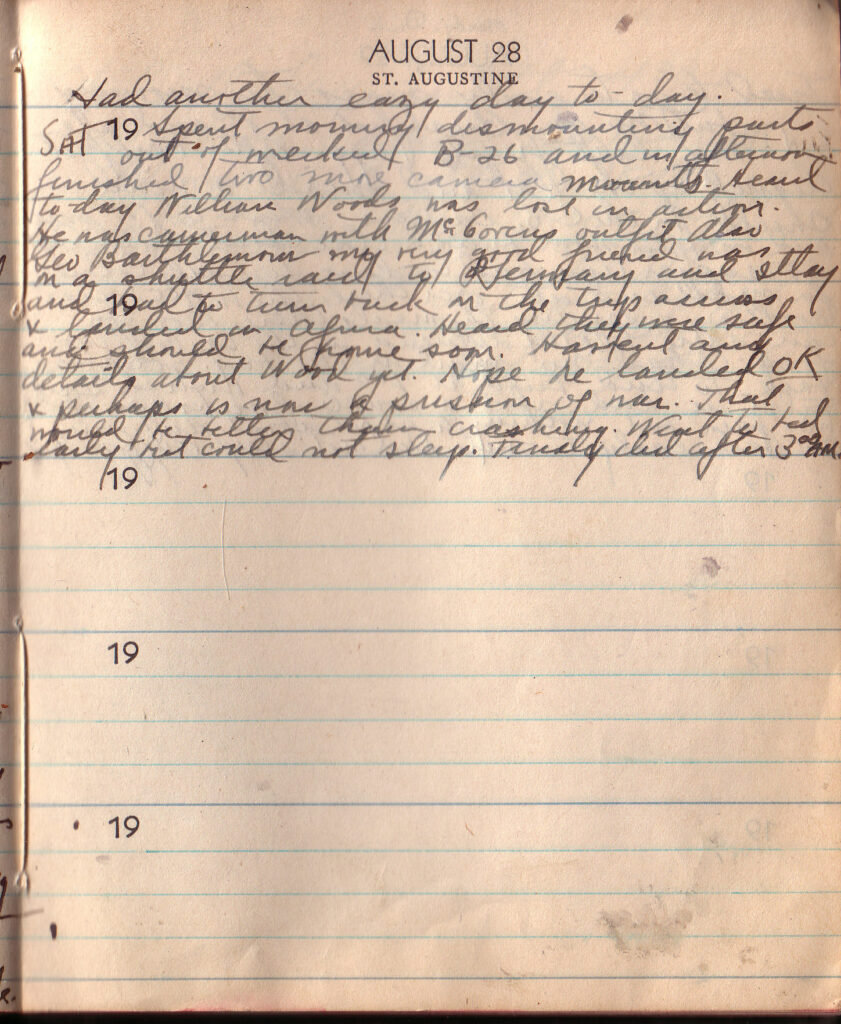 AUGUST 28
ST. AUGUSTINE
Had another eazy day to-day.
SAT 19 Spent morning dismounting parts
out of wrecked B-26 and in afternoon
finished two more camera mounts. Heard
to-day William Woods was lost in action.
He was camerman with McGoverns outfit Also
Geo Barthlemow my very good friend was
on a shuttle raid to Germany and Ittay
and had to turn back on the trip across
19
& landed in Africa. Heard they were safe
and should be home soon. Havent any
details about Wood yet. Hope he landed OK
& perhaps is now a prisoner of war. That
would be better than crashing. Went to bed
early but could not sleep. Finally did after 3 AM.
19
19
19